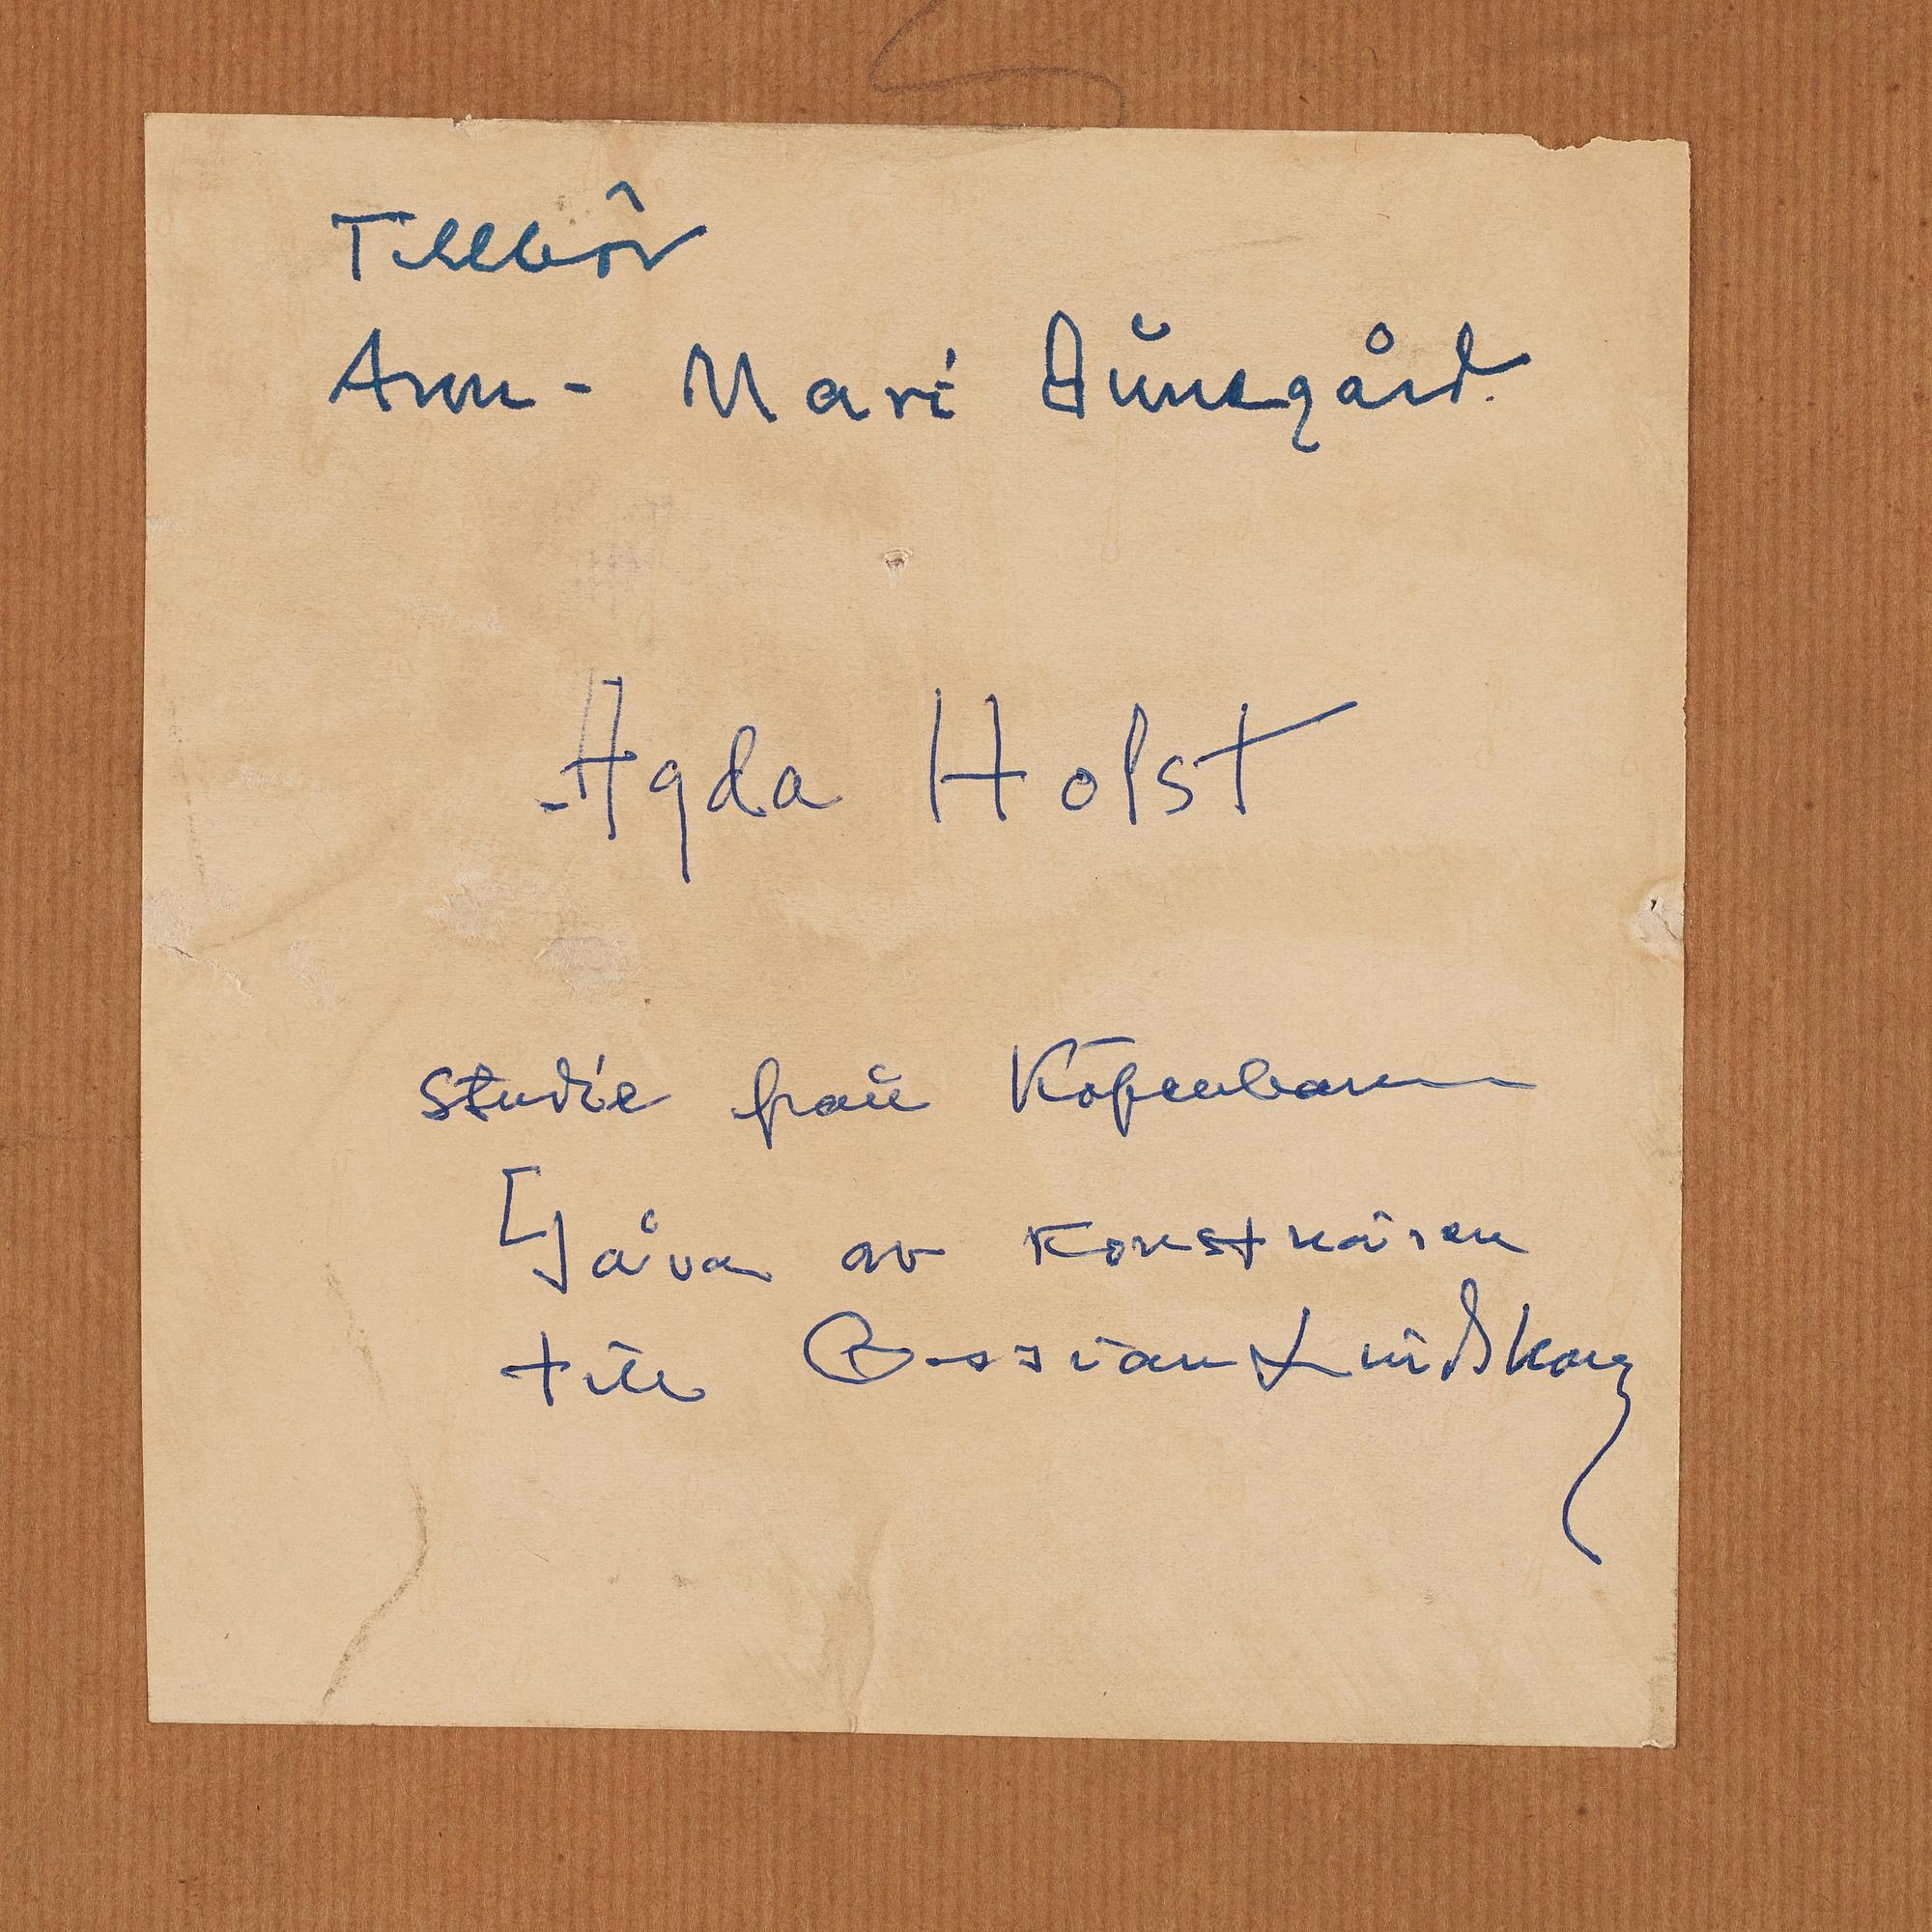 Tillhör
Ann-Mari
Agda Holst
studie från Köpenhamn
Gåva av Konstnären
till Ossian Lindskoug